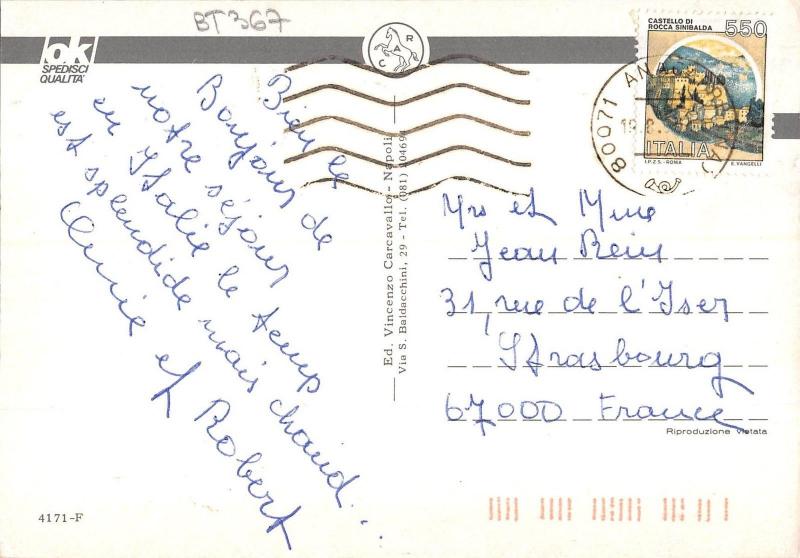 BT367
ok
SPEDISCI
QUALITA'
CAR
CASTELLO DI
ROCCA SINIBALDA
550
ITALIA
I.P.Z.S. - ROMA
E. VANGELLI
80071 ANACAPRI
Bien le
Bonjour de
notre séjour
en Italie le temps
est splendide mais chaud...
Annie et Robert
Ed. Vincenzo Carcavallo - Napoli
Via S. Baldacchini, 29 - Tel. (081)
Mrs et Mme
Jean Rein
31, rue de l'Iser
Strasbourg
67000 France
Riproduzione vietata
4171-F